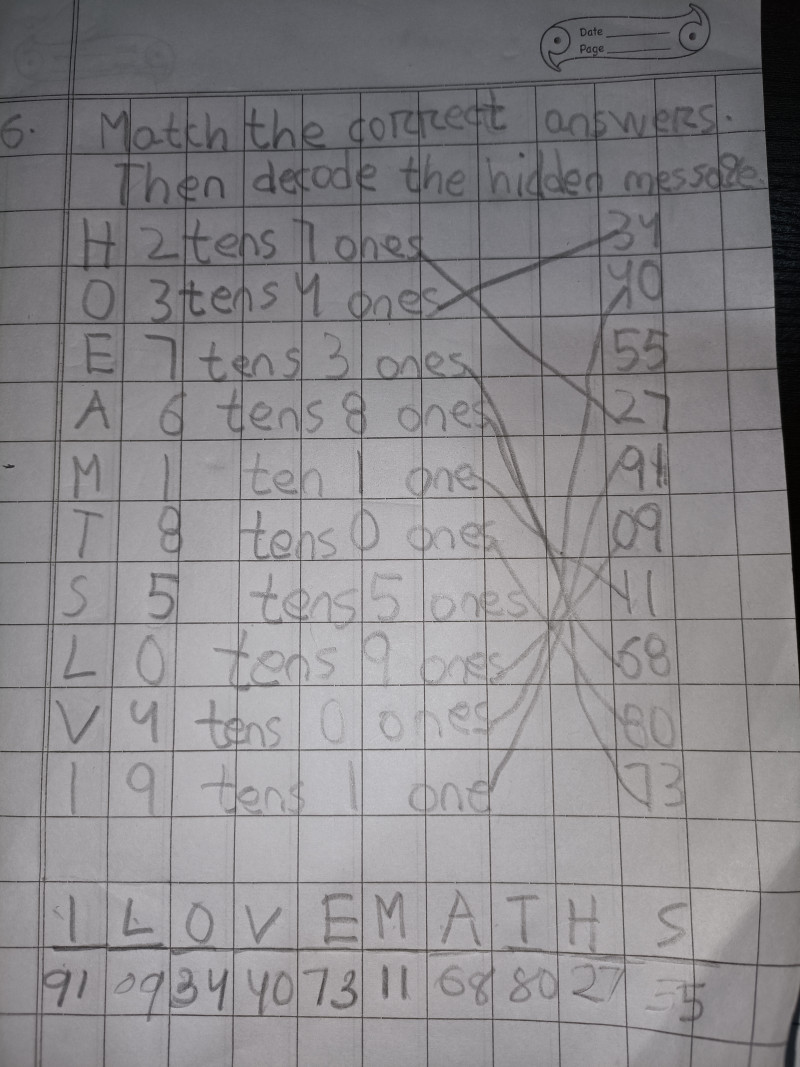 Date
Page
6. Match the correct answers.
Then decode the hidden message.
H 2 tens 7 ones 34
O 3 tens 4 ones 40
E 7 tens 3 ones 55
A 6 tens 8 ones 27
M 1 ten 1 one 91
T 8 tens 0 ones 09
S 5 tens 5 ones 11
L 0 tens 9 ones 68
V 4 tens 0 ones 80
I 9 tens 1 one 73
I L O V E M A T H S
91 09 34 40 73 11 68 80 27 55